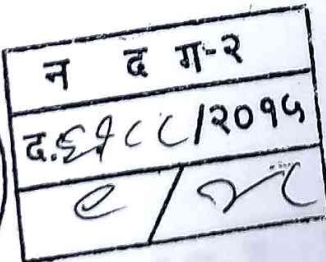 न द ग-२
द.६१८८/२०१५